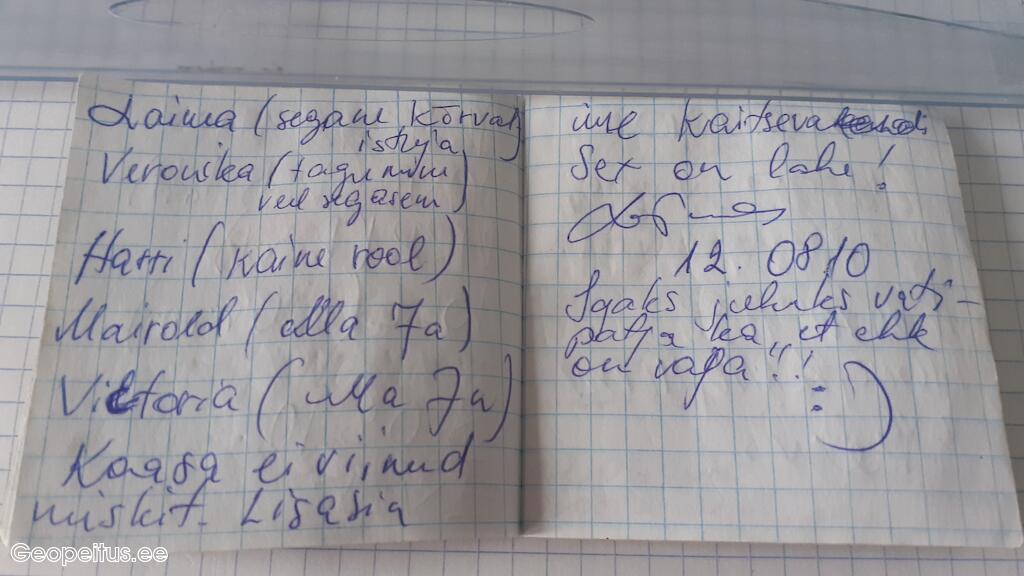 Laima (segane kõrval
istuja)
Veronika (tagumine
veel segasem)
Harri (kaine rool)
Mairold (alla 7a)
Victoria (alla 7a)
Kaasa ei viinud
miskit. Lisasin
ime kaitseva
Sex on lahe!
12.08.10
Igaks juhuks võti-
patja ka, et ehk
on vaja!!!
:)
Geopeitus.ee